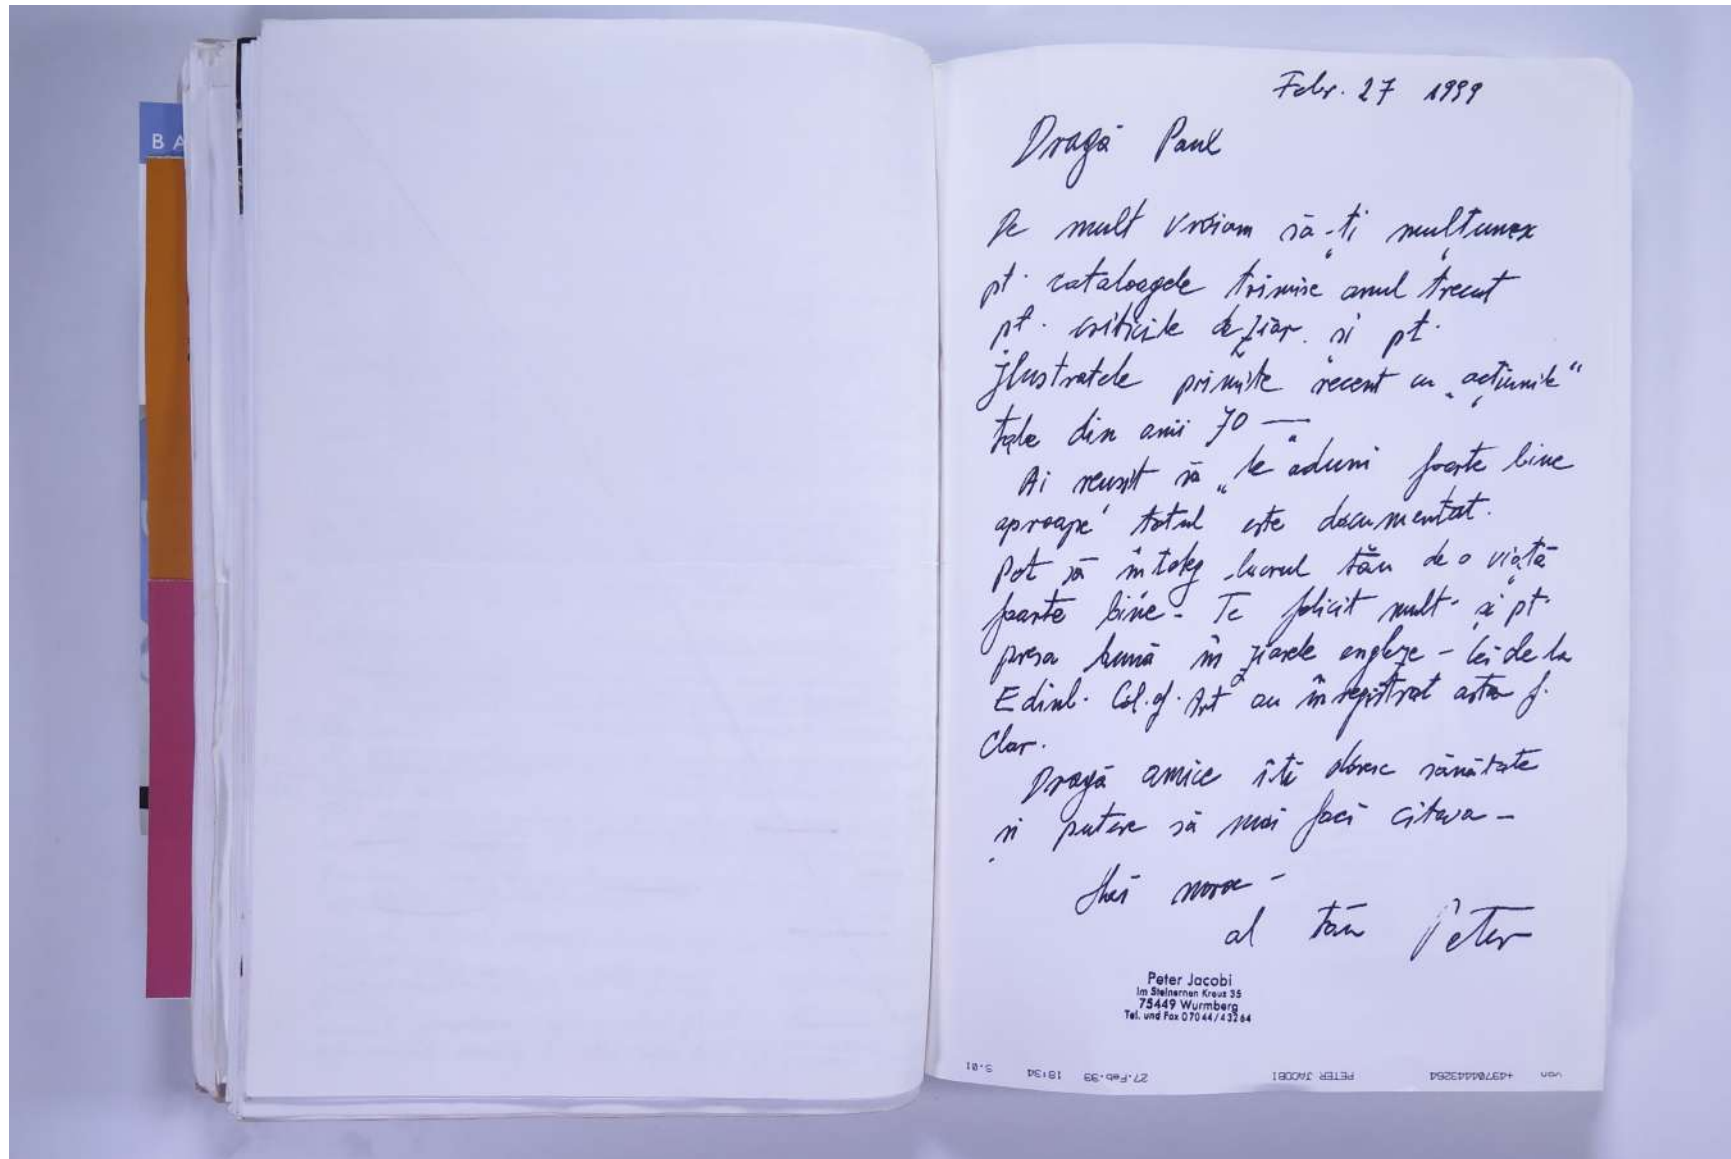 BA
Febr. 27 1999
Dragă Paul
De mult vroiam să-ți mulțumex
pt. cataloagele trimise anul trecut
pt. criticile de ziar. și pt.
jlustratele primite recent cu „acțiunile“
tale din anii 70 —
Ai reușit să „le aduni“ foarte bine
aproape totul este documentat.
Pot să înteleg lucrul tău de o viață
foarte bine - Te felicit mult și pt.
presa bună în ziarele engleze - Cei de la
Edinb. Col. of. Art au înregistrat asta f.
Clar.
Dragă amice îți doresc sănătate
și putere să mai faci citeva -
Hai noroc -
al tău Peter
Peter Jacobi
Im Steinernen Kreuz 35
75449 Wurmberg
Tel. und Fax 07044/43264
von +49704443264 PETER JACOBI 27-Feb-99 18:34 S.01